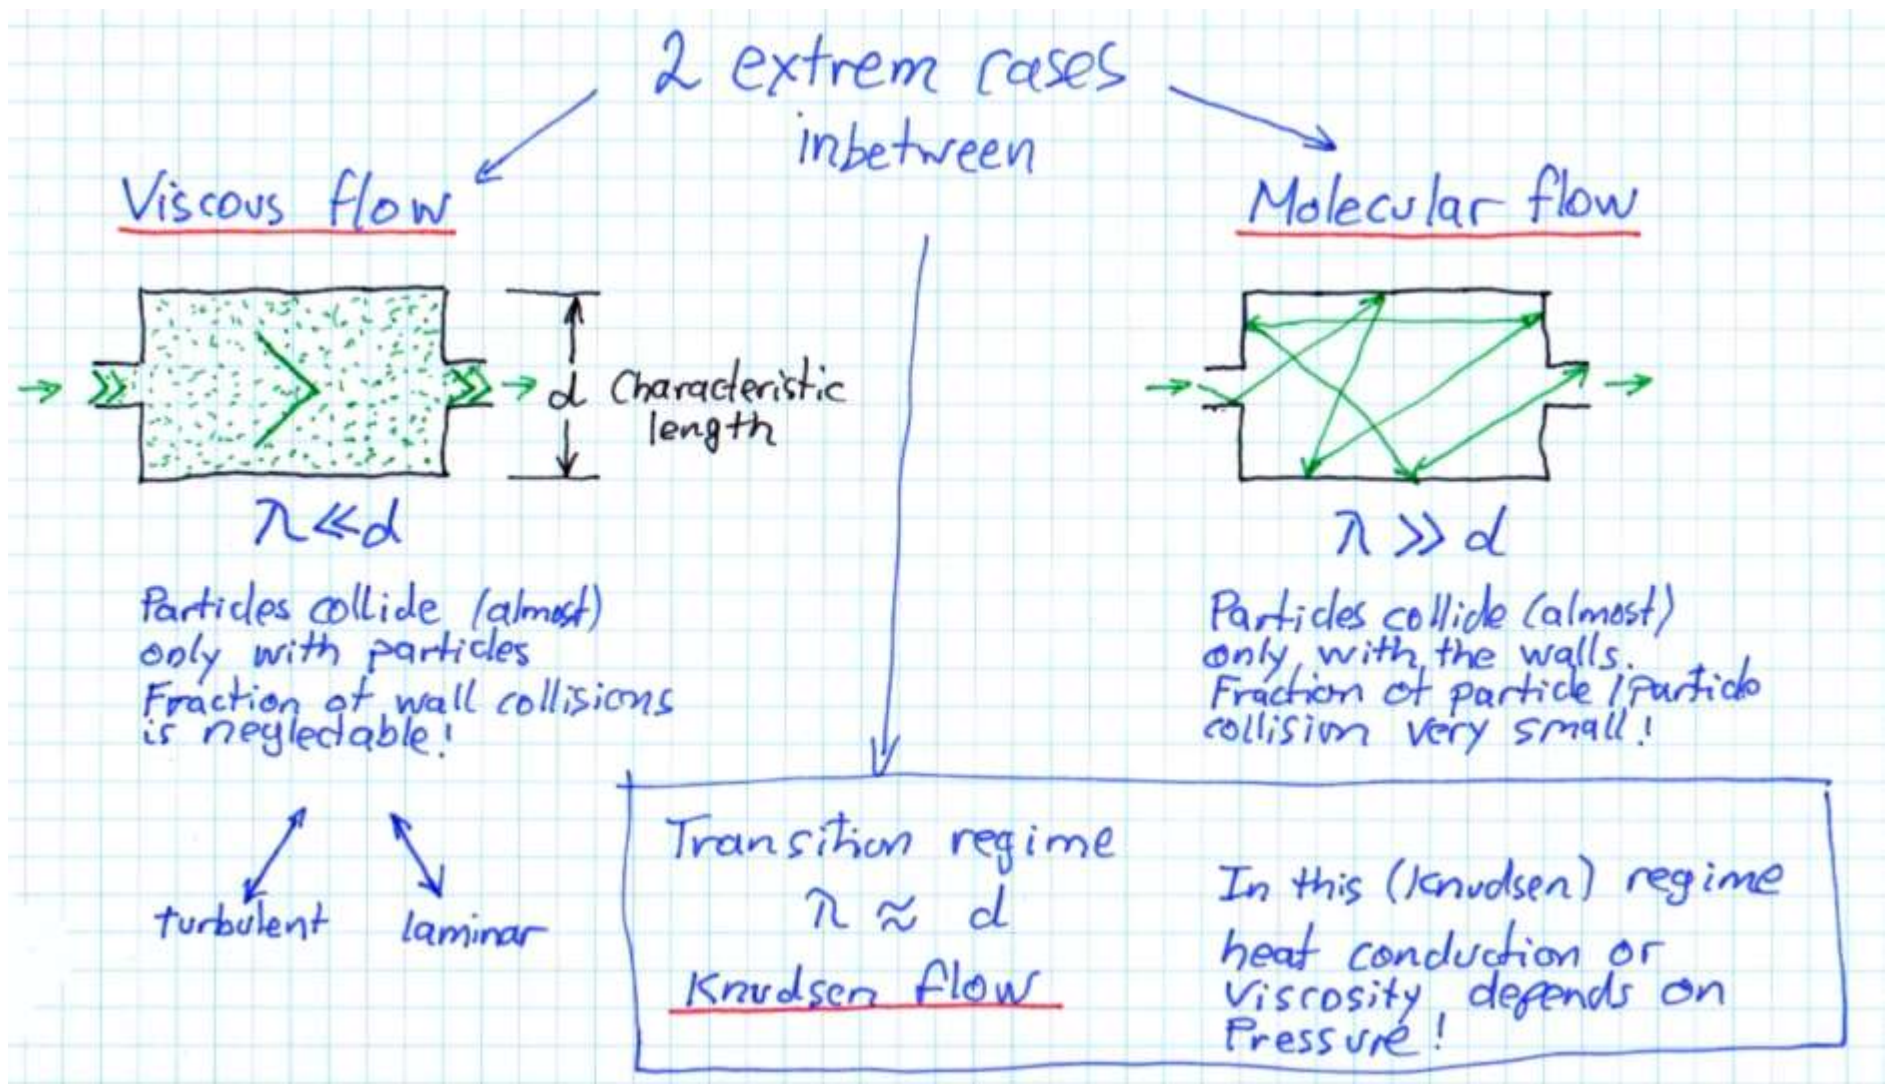 2 extrem cases
inbetween
Viscous flow
d Characteristic
length
λ ≪ d
Particles collide (almost)
only with particles
Fraction of wall collisions
is neglectable!
turbulent laminar
Molecular flow
λ ≫ d
Particles collide (almost)
only with the walls.
Fraction of particle/particle
collision very small!
Transition regime
λ ≈ d
Knudsen flow
In this (Knudsen) regime
heat conduction or
viscosity depends on
Pressure!